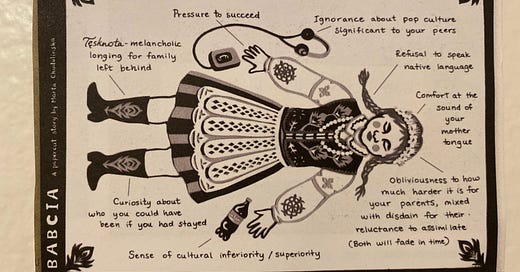 BABCIA
a papercut story by Marta Chudolinska
Pressure to succeed
Ignorance about pop culture
significant to your peers
Tęsknota - melancholic
longing for family
left behind
Refusal to speak
native language
Comfort at the
sound of
your
mother
tongue
Obliviousness to how
much harder it is for
your parents, mixed
with disdain for their
reluctance to assimilate
(Both will fade in time)
Curiosity about
who you could have
been if you had stayed
Sense of cultural inferiority / superiority